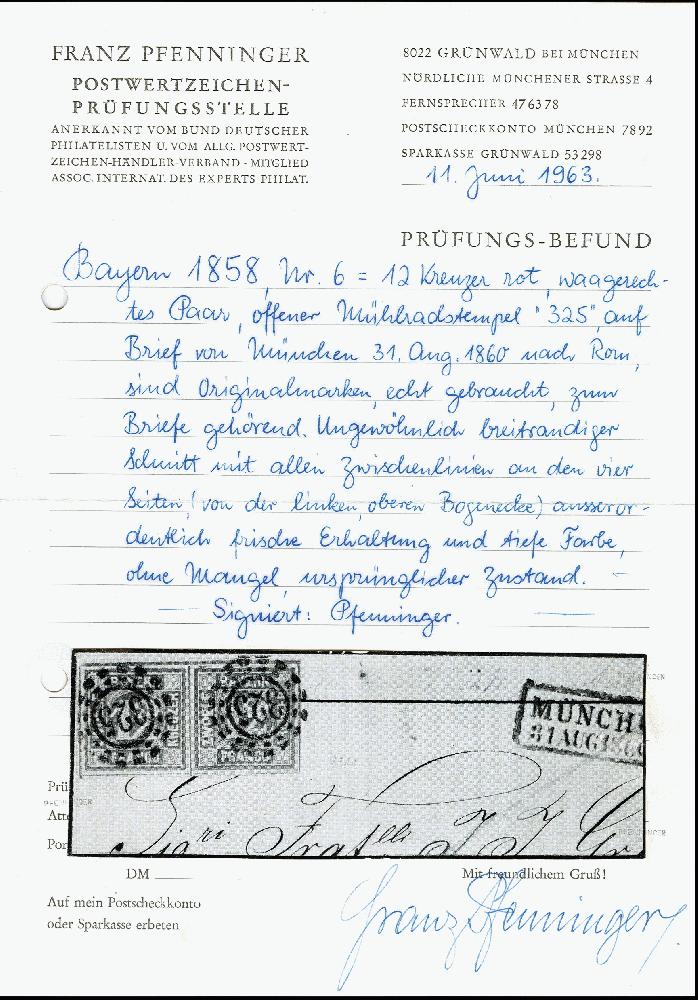 FRANZ PFENNINGER
POSTWERTZEICHEN-
PRÜFUNGSSTELLE
ANERKANNT VOM BUND DEUTSCHER
PHILATELISTEN U. VOM ALLG. POSTWERT-
ZEICHEN-HÄNDLER-VERBAND - MITGLIED
ASSOC. INTERNAT. DES EXPERTS PHILAT.
8022 GRÜNWALD BEI MÜNCHEN
NÖRDLICHE MÜNCHENER STRASSE 4
FERNSPRECHER 476378
POSTSCHECKKONTO MÜNCHEN 7892
SPARKASSE GRÜNWALD 53298
11. Juni 1963.
PRÜFUNGS-BEFUND
Bayern 1858, Nr. 6 = 12 Kreuzer rot, waagerech-
tes Paar, offener Mühlradstempel "325", auf
Brief von München 31. Aug. 1860 nach Rom,
sind Originalmarken, echt gebraucht, zum
Briefe gehörend. Ungewöhnlich breitrandiger
Schnitt mit allen Zwischenlinien an den vier
Seiten, (von der linken, oberen Bogenecke) ausseror-
dentlich frische Erhaltung und tiefe Farbe,
ohne Mangel, ursprünglicher Zustand.
Signiert: Pfenninger.
325 325
MÜNCH
31 AUG 186
Sigri Fratelli
Prü
Att
Por
DM
Mit freundlichem Gruß!
Auf mein Postscheckkonto
oder Sparkasse erbeten
Franz Pfenninger